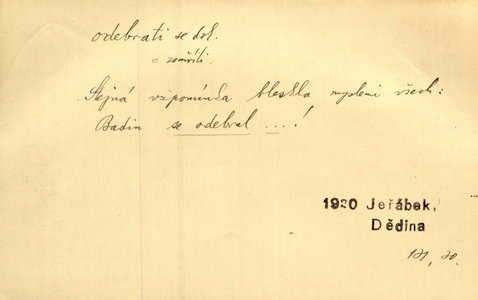 odebrati se dok.
= zemříti.
Stejná vzpomínka bleskla myslemi všech:
Badin se odebral ...!
1920 Jeřábek,
Dědina
121, 20.